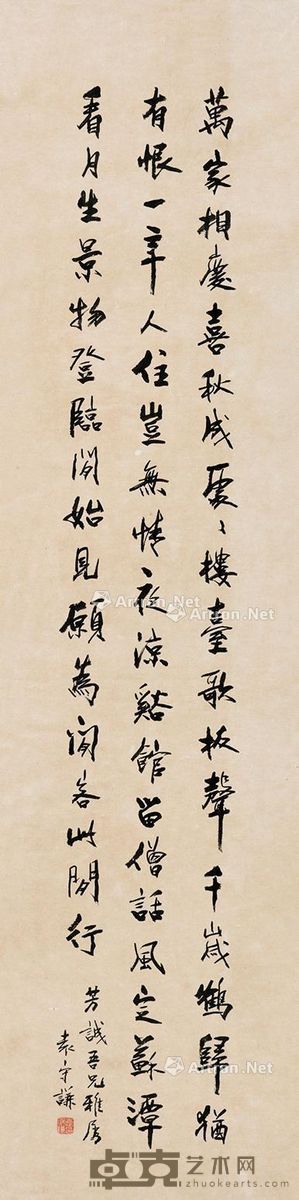 萬家相慶喜秋成處〻樓臺歌板聲千歲鶴歸猶
有恨一年人住豈無情夜涼谿館留僧話風定蘇潭
看月生景物登臨閒始見願為閒客此閒行
芳誠吾兄雅屬
袁守謙
Artron.Net
Artron.Net
Artron.Net
Artron.Net
卓克艺术网
zhuokearts.com